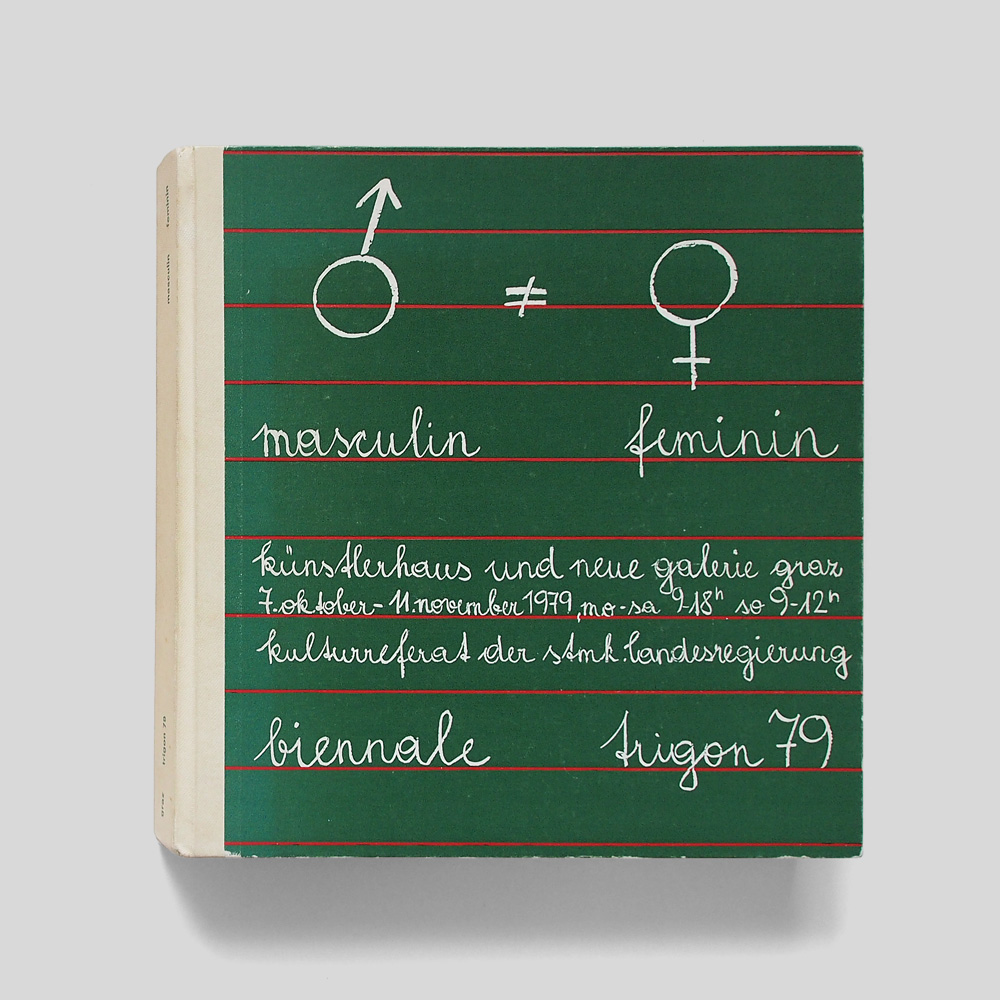 ♂ ≠ ♀
masculin feminin
künstlerhaus und neue galerie graz
7.oktober - 11.november 1979, mo-sa 9-18ʰ so 9-12ʰ
kulturreferat der stmk. landesregierung
biennale trigon 79
graz trigon 79 masculin feminin